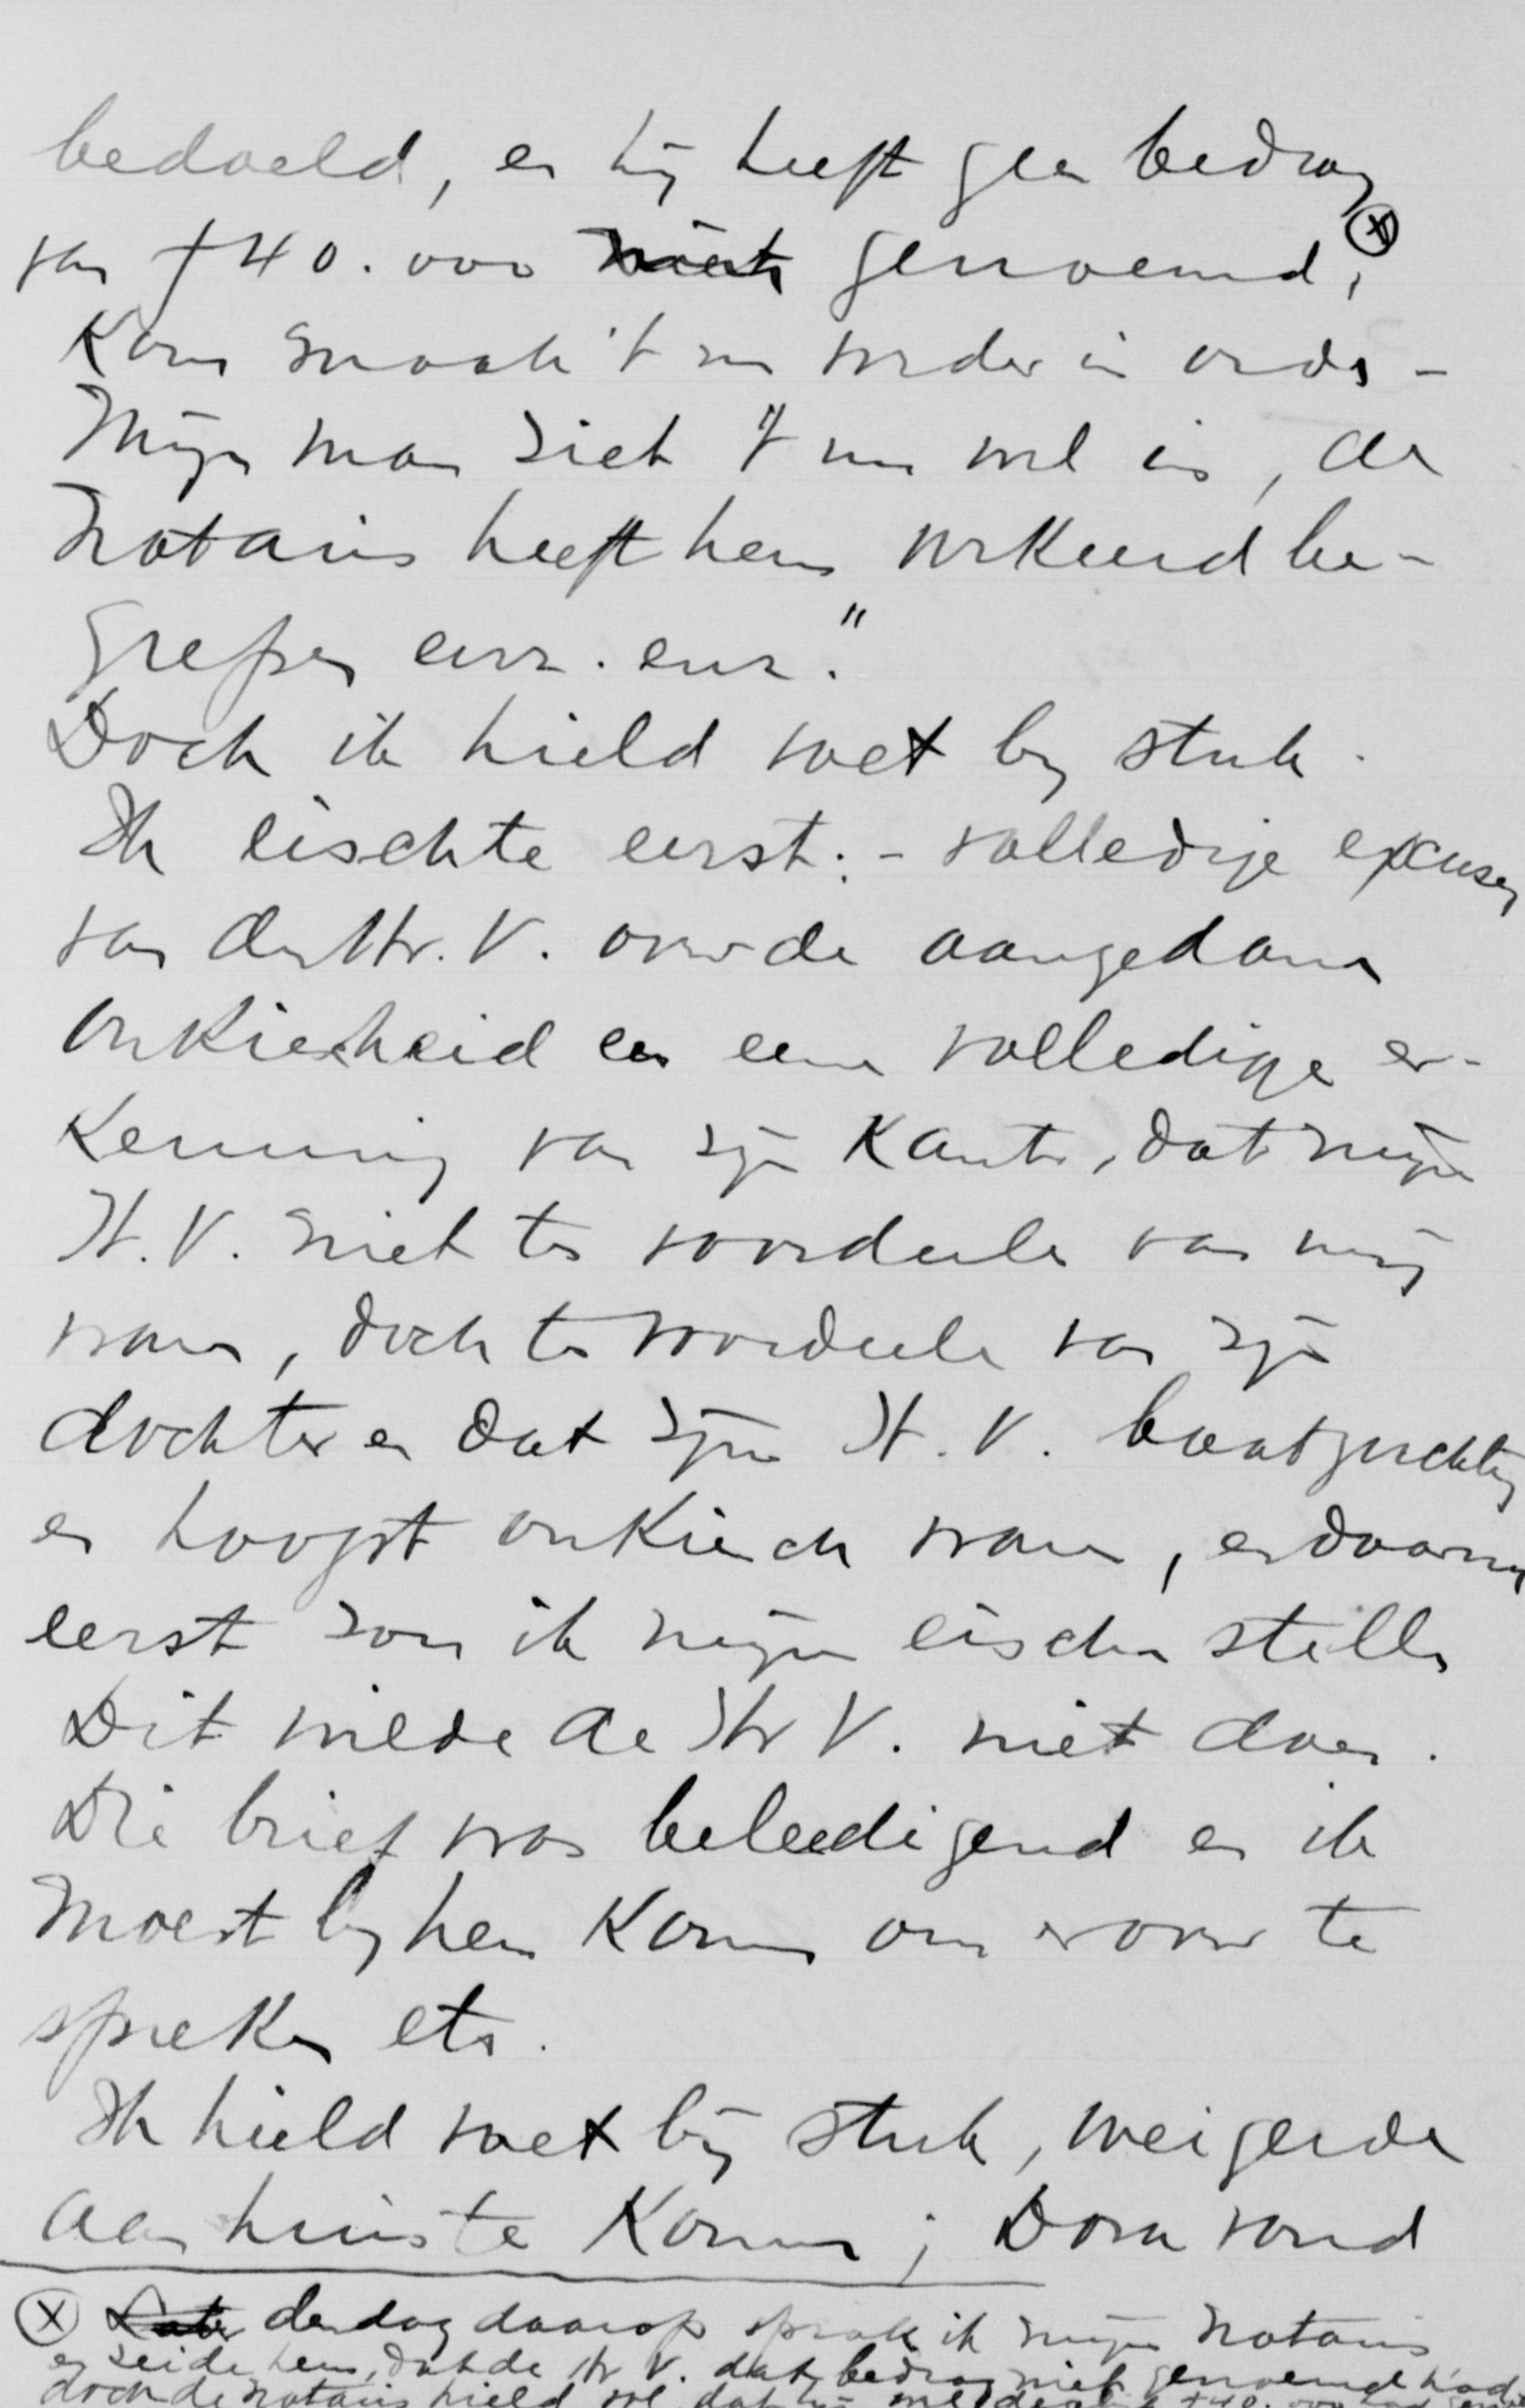 bedoeld, en hij heeft geen bedrag
van f 40.000 niet genoemd, ⊗
Kom maak 't nu verder in orde -
Mijn man ziet 't nu wel in, de
Notaris heeft hem verkeerd be-
grepen enz. enz."
Doch ik hield voet bij stuk.
Ik eischte eerst: - volledige excuses
van den Hr. V. over de aangedane
onkieschheid en eene volledige er-
kenning van zijn kant, dat mijne
H.V. niet ten voordeele van mij
waren, doch ten voordeele van zijn
dochter en dat zijne H.V. baatzuchtig
en hoogst onkiesch waren, en daarna
eerst zou ik mijn eischen stellen
Dit wilde de Hr V. niet doen.
Die brief was beleedigend en ik
moest bij hem komen om erover te
spreken etc.
Ik hield voet bij stuk, weigerde
aan huis te komen; Dora vond
⊗ Later den dag daarop sprak ik mijn Notaris
en zeide hem, dat de Hr V. dat bedrag niet genoemd had
doch de notaris hield vol dat hij f 40.000